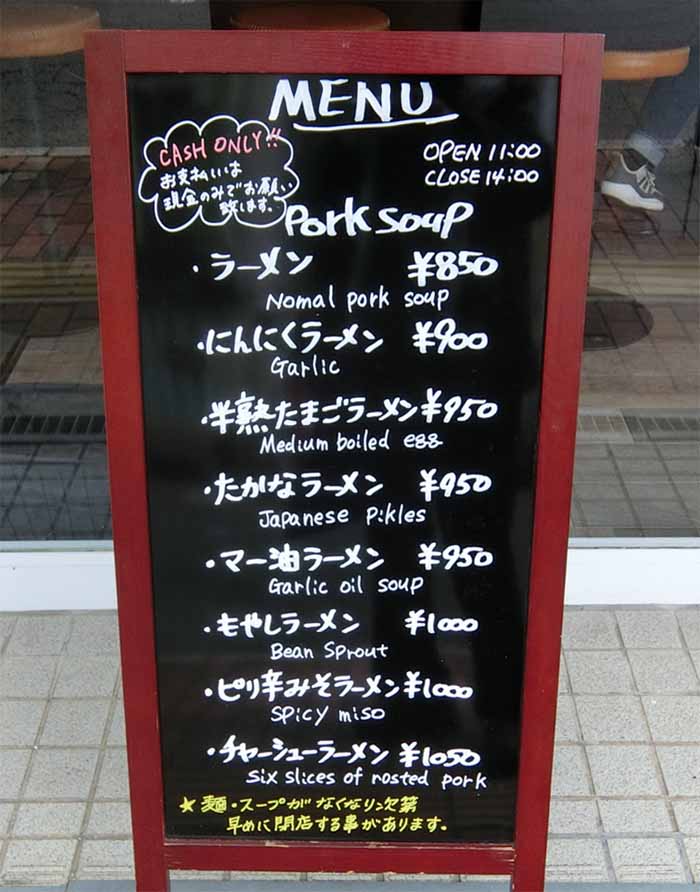 MENU
CASH ONLY!!
お支払いは
現金のみでお願い
致します。
OPEN 11:00
CLOSE 14:00
Pork soup
・ラーメン ¥850
Nomal pork soup
・にんにくラーメン ¥900
Garlic
・半熟たまごラーメン ¥950
Medium boiled egg
・たかなラーメン ¥950
Japanese Pikles
・マー油ラーメン ¥950
Garlic oil soup
・もやしラーメン ¥1000
Bean Sprout
・ピリ辛みそラーメン ¥1000
Spicy miso
・チャーシューラーメン ¥1050
Six slices of rosted pork
★麺・スープがなくなり次第
早めに閉店する事があります。